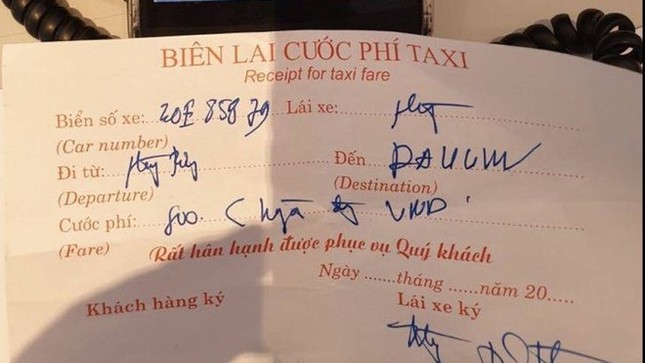 BIÊN LAI CƯỚC PHÍ TAXI
Receipt for taxi fare
Biển số xe: Lái xe:
(Car number)
Đi từ: Đến
(Departure) (Destination)
Cước phí: 800. VNĐ
(Fare)
Rất hân hạnh được phục vụ Quý khách
Ngày .......tháng ......năm 20.....
Khách hàng ký Lái xe ký